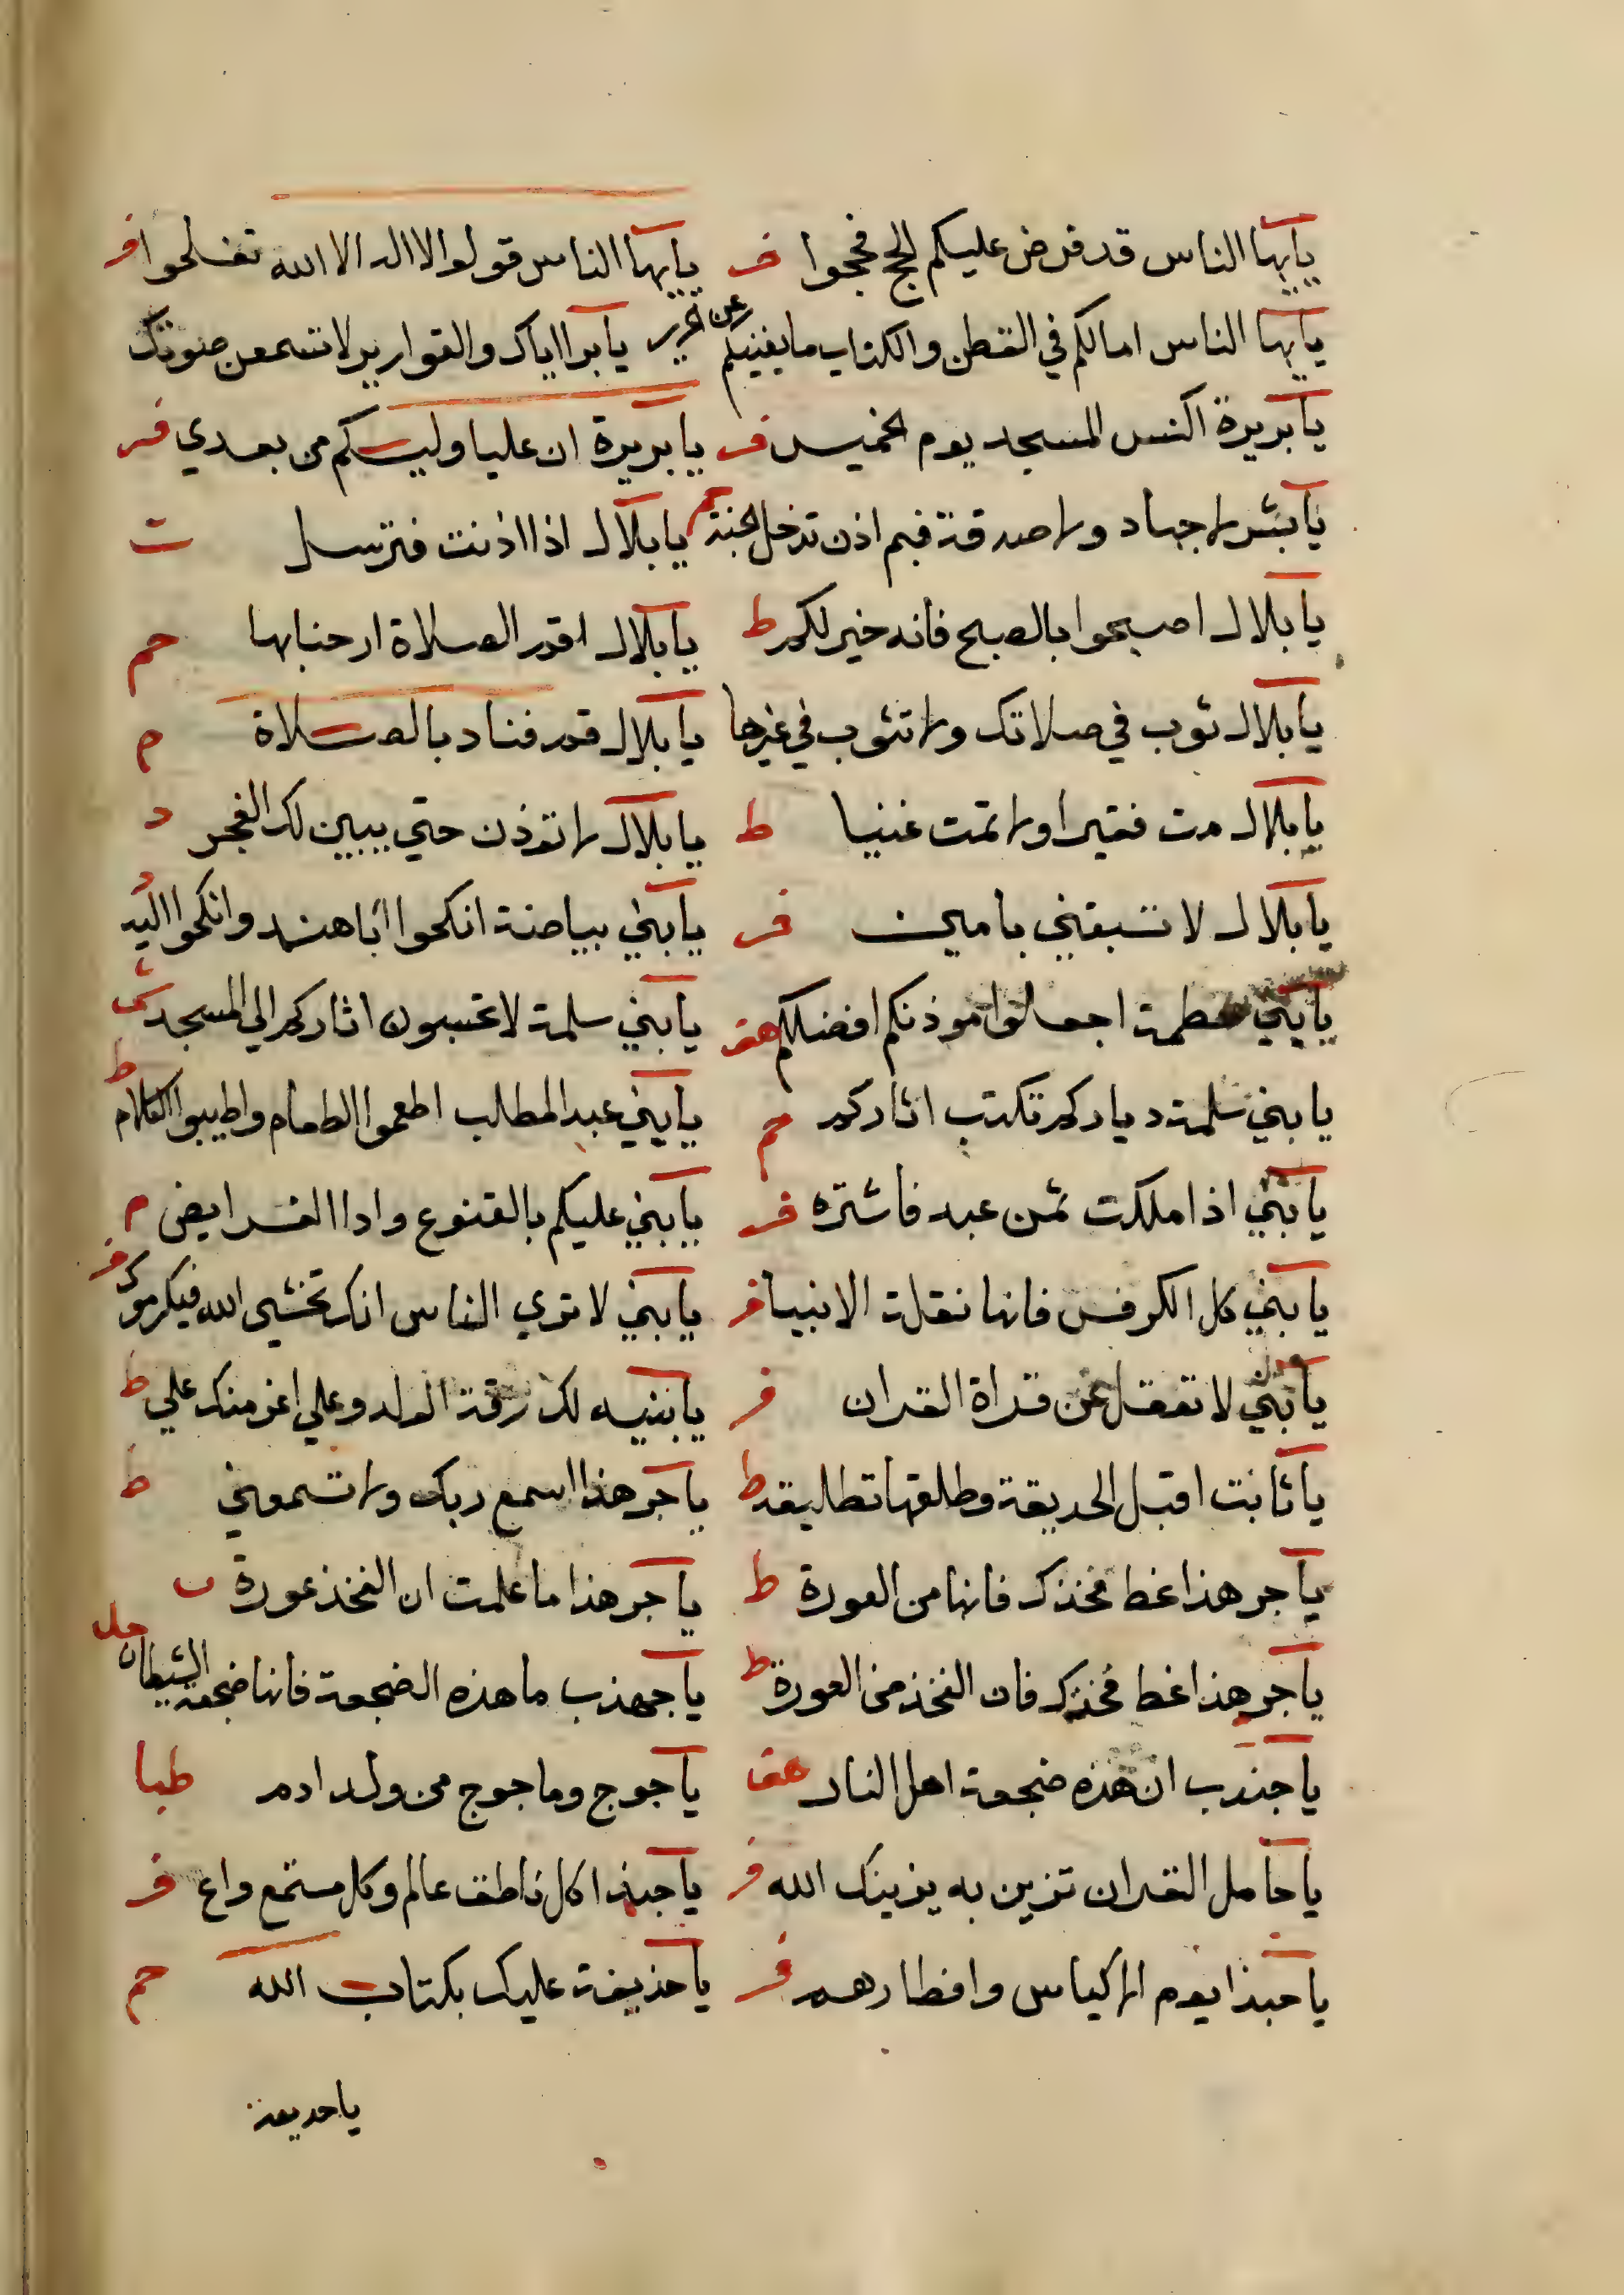 يأيها الناس قد فرض عليكم الحج فحجوا فر يأيها الناس قولوا لا اله الا الله تفلحوا فر
يأيها الناس امالكم في القطن والكتاب ما يغنيكم عن الحرير يا برا اياك والقوارير لا تسمعن صوتك
يا بريرة اكنس المسجد يوم الخميس فر يا بريدة ان عليا وليكم من بعدي فر
يا بشر لا جهاد ولا صدقة فبم اذن تدخل الجنة حم يا بلال اذا اذنت فترسل ت
يا بلال اصبحوا بالصبح فانه خير لكم ط يا بلال اقم الصلاة ارحنا بها حم
يا بلال ثوب في صلاتك ولا تثوب في غيرها يا بلال قم فناد بالصلاة م
يا بلال مت فقيرا ولا تمت غنيا ط يا بلال لا توذن حتي يبين لك الفجر د
يا بلال لا تسبقني بامين فر يا بني بياضة انكحوا ابا هند وانكحوا اليه د
يا بني خطمة اجعلوا موذنكم افضلكم هق يا بني سلمة لا تحتسبون اثاركم الي المسجد
يا بني سلمة دياركم تكتب اثاركم حم يا بني عبد المطلب اطعموا الطعام واطيبوا الكلام ط
يا بني اذا ملكت ثمن عبد فاشتره فر يا بني عليكم بالقنوع وادا الفرايض م
يا بني كل الكرفس فانها نقلة الانبيا فر يا بني لا تري الناس انك تخشي الله فيكرموك فر
يا بني لا تغفل عن قراة القران فر يا بنيه لك رقة الولد وعلي اعز منك علي ط
يا ثابت اقبل الحديقة وطلقها تطليقه ط يا جرهذ اسمع ربك ولا تسمعني ط
يا جرهذ اغط فخذك فانها من العورة ط يا جرهذ اما علمت ان الفخذ عورة ت
يا جرهذ اغط فخذك فان الفخذ من العورة ط يا جهذب ما هذه الضجعة فانها ضجعة الشيطان حل
يا جندب ان هذه ضجعة اهل النار هق يا جوج وماجوج من ولد ادم طبا
يا حامل القران تزين به يزينك الله فر يا حبذا كل ناطق عالم وكل مستمع واع فر
يا حبذا يوم الاكياس وافطارهم فر يا حذيفة عليك بكتاب الله حم
يا حديفة